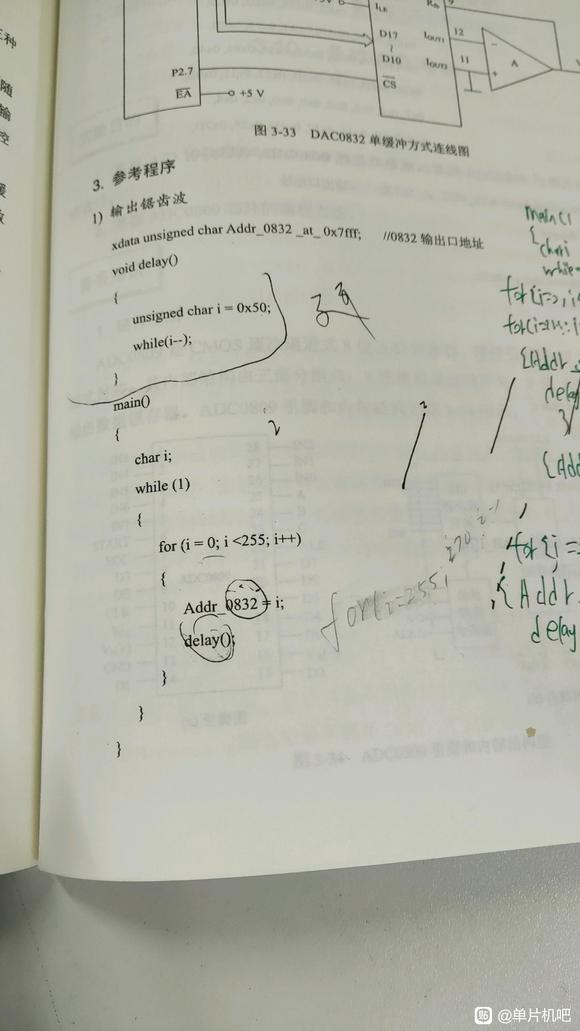 种
随
输
控
I_LE
R_fb
9
D17
~
D10
CS
I_OUT1 12
I_OUT2 11
-
+
A
P2.7
EA
+5 V
图 3-33 DAC0832 单缓冲方式连线图
3. 参考程序
1) 输出锯齿波
xdata unsigned char Addr_0832 _at_ 0x7fff; //0832 输出口地址
void delay()
{
unsigned char i = 0x50;
while(i--);
}
main()
{
char i;
while (1)
{
for (i = 0; i <255; i++)
{
Addr_0832 = i;
delay();
}
}
}
for(i=255;
main(
{
char i
while
{Addr
delay
{Add
for(i=
{Addr
delay
图 3-34 ADC0809 引脚和内部结构图
@单片机吧